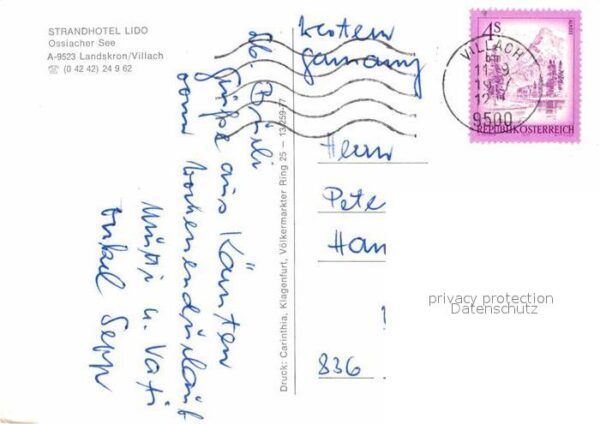 STRANDHOTEL LIDO
Ossiacher See
A-9523 Landskron/Villach
☏ (0 42 42) 24 9 62
Grüße aus Kärnten
vom Wochenendurlaub
Mutti u. Vati
Onkel Sepp
Druck: Carinthia, Klagenfurt, Völkermarkter Ring 25 — 13 259-77
germany
Herrn
Pete
Han
836
4S
REPUBLIK ÖSTERREICH
VILLACH
9500
privacy protection
Datenschutz